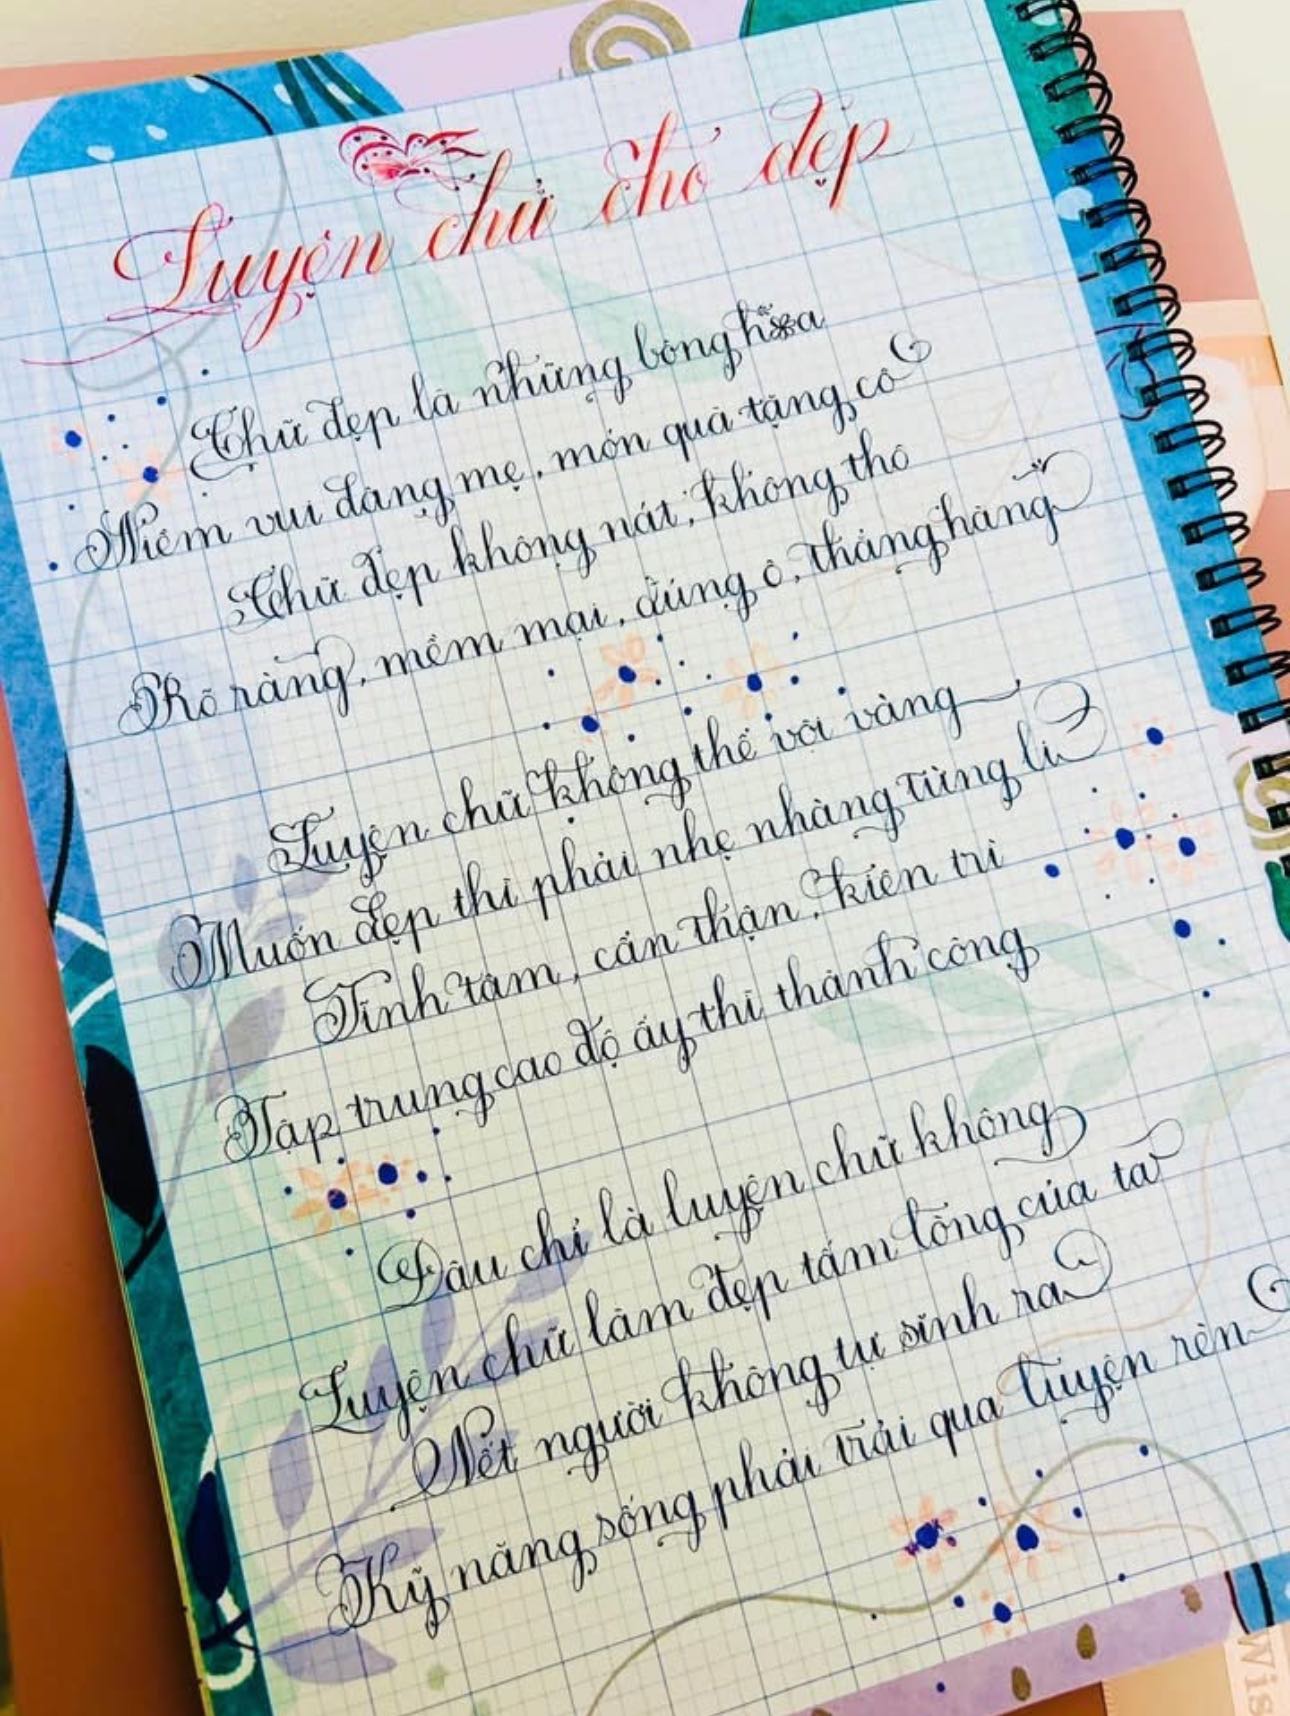 Luyện chữ cho đẹp
Chữ đẹp là những bông hoa
Niềm vui dâng mẹ, món quà tặng cô
Chữ đẹp không nát, không thô
Rõ ràng, mềm mại, đúng ô, thẳng hàng
Luyện chữ không thể vội vàng
Muốn đẹp thì phải nhẹ nhàng từng li
Tĩnh tâm, cẩn thận, kiên trì
Tập trung cao độ ấy thì thành công
Đâu chỉ là luyện chữ không
Luyện chữ làm đẹp tấm lòng của ta
Nết người không tự sinh ra
Kỹ năng sống phải trải qua luyện rèn
Wis